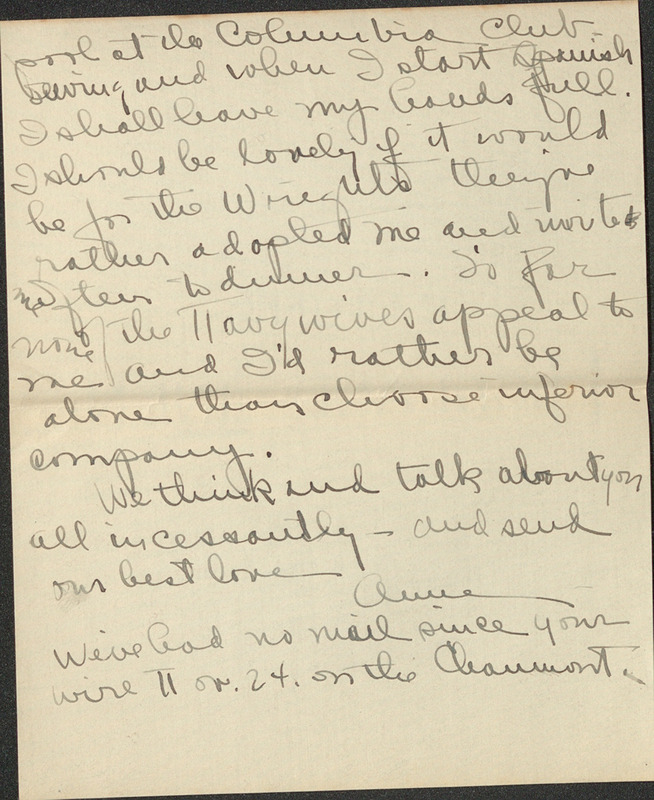 pool at the Columbia Club
sewing and when I start Spanish
I shall have my hands full.
I should be lonely if it would
be for the Wrights they've
rather adopted me and invite
me often to dinner. So far
none of the Navy wives appeal to
me and I'd rather be
alone than choose inferior
company.
We think and talk about you
all incessantly - and send
our best love
Anne
We've had no mail since your
wire Nov. 24. on the Chaumont.